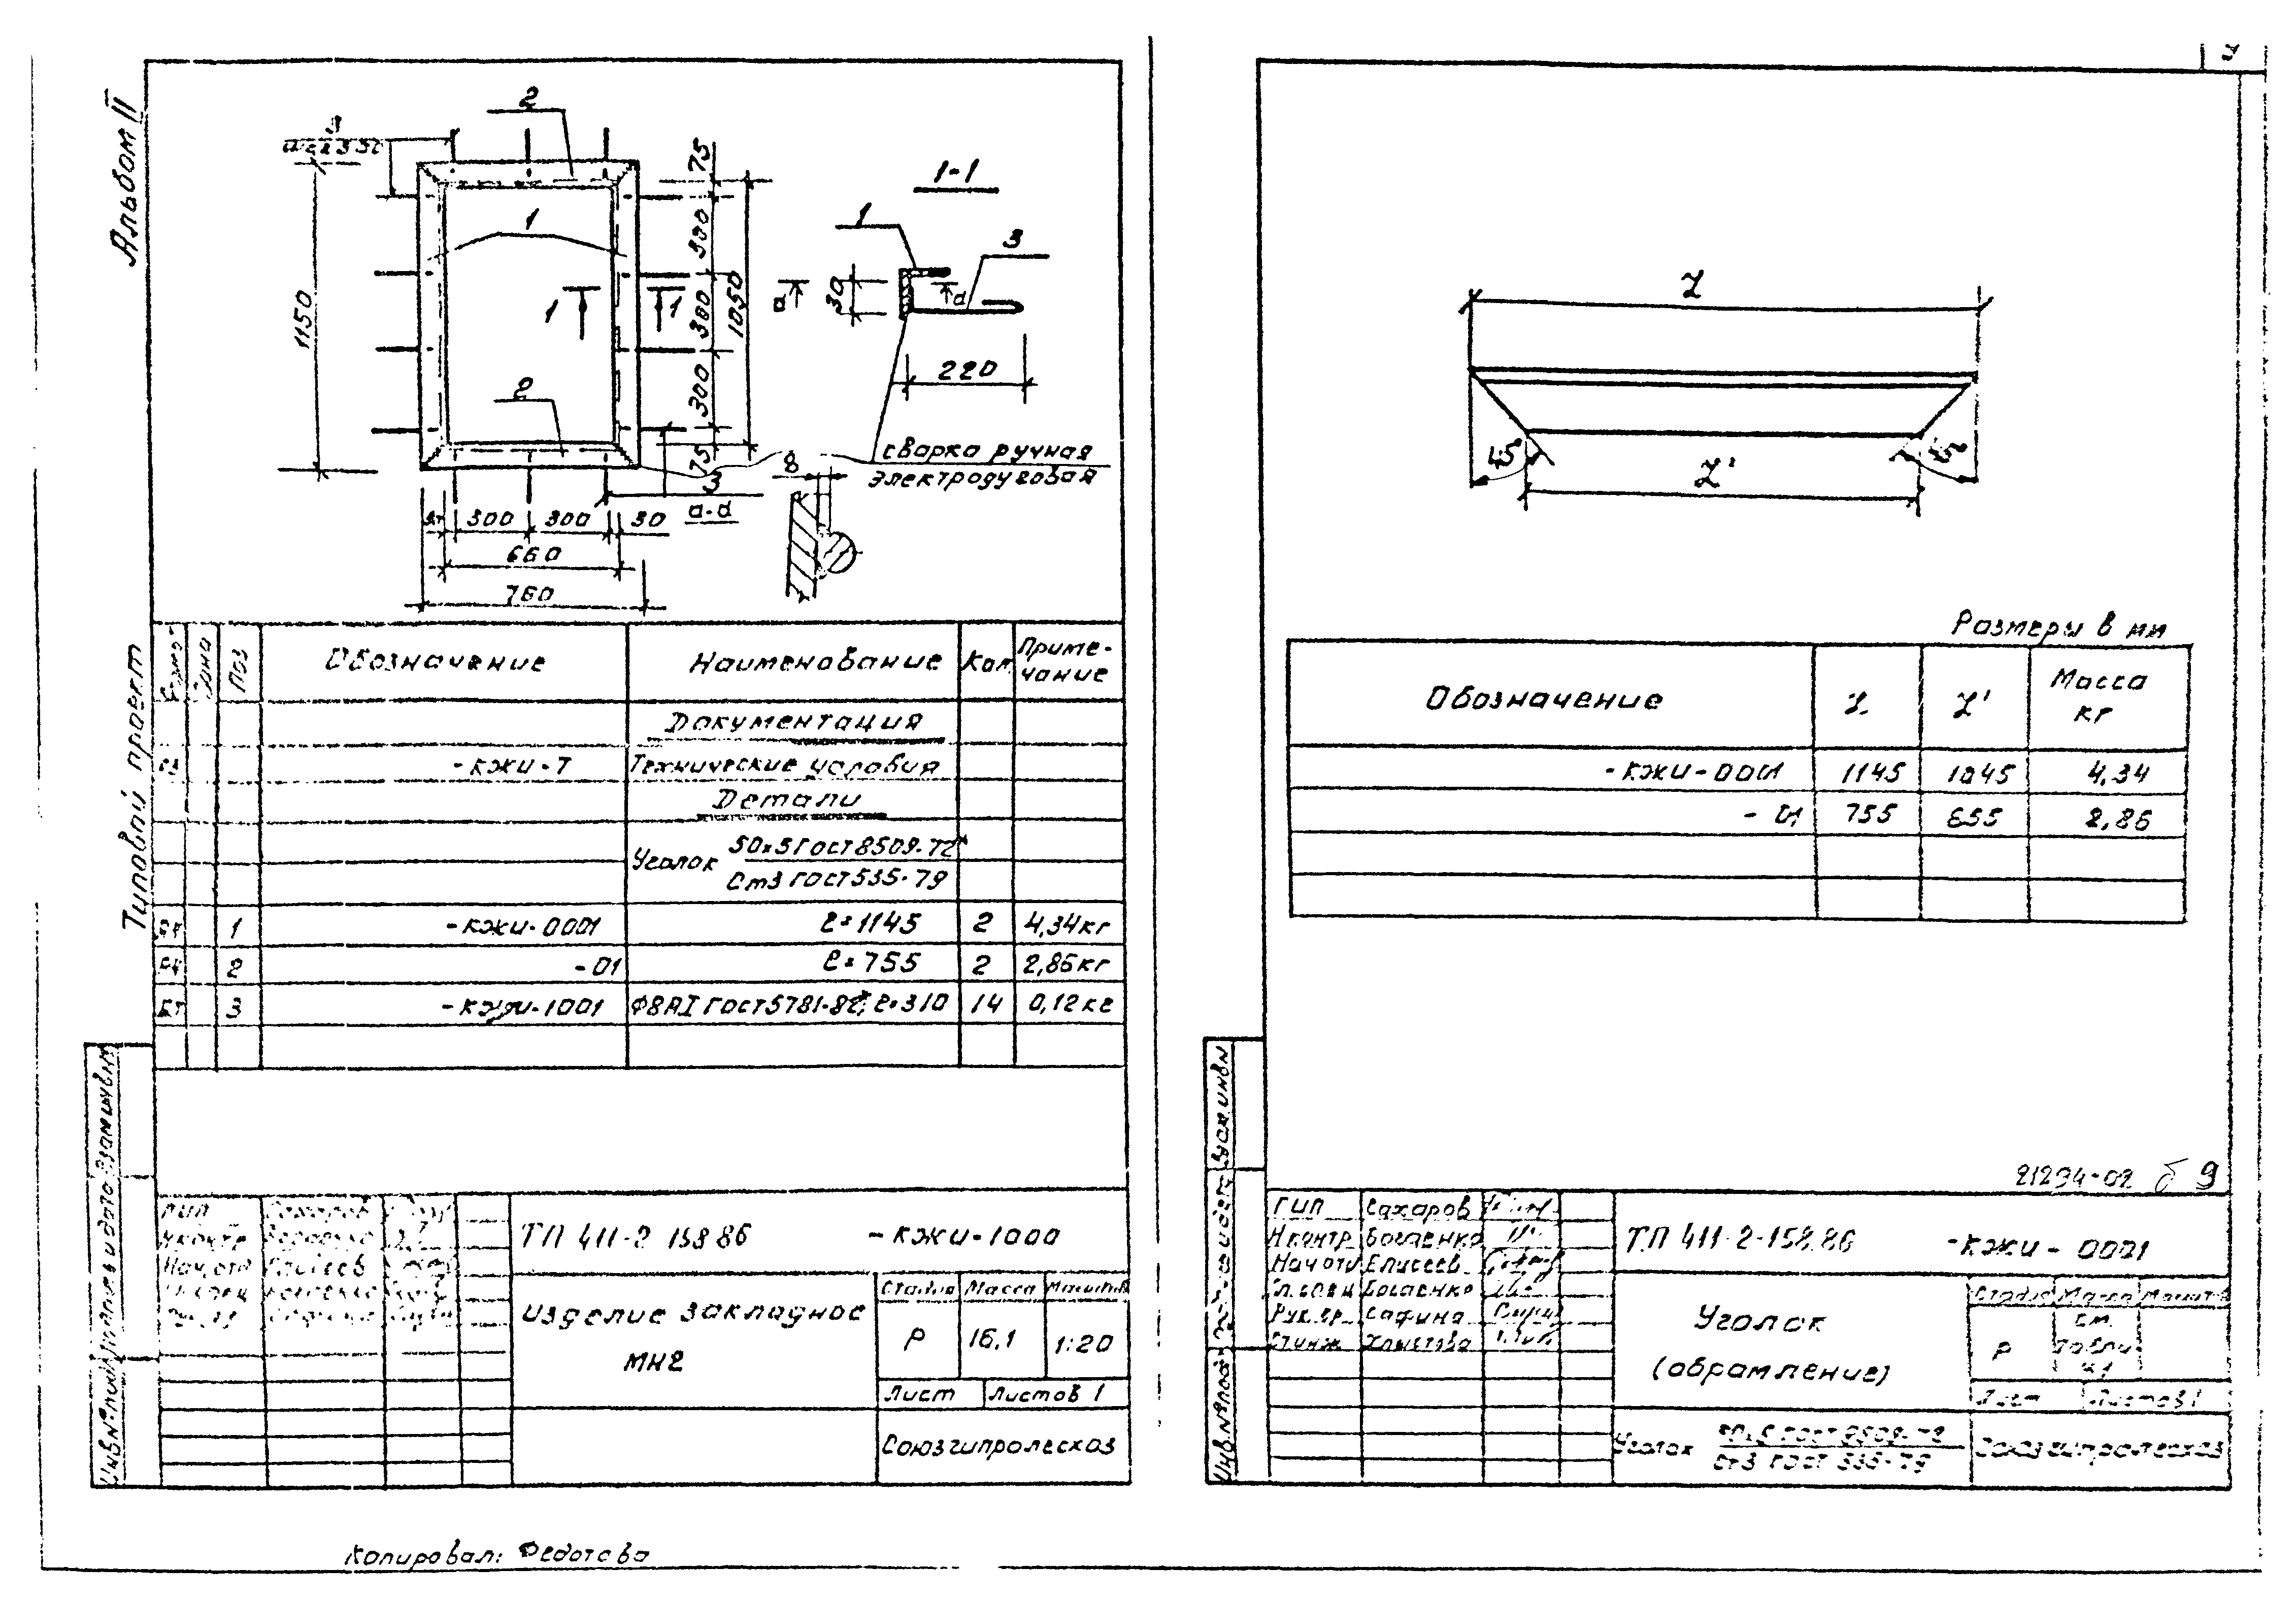 Альбом II
Типовой проект
2
1
1-1
1
3
1150
75
300
300
300
75
1050
30
220
1
1
2
сварка ручная
электродуговая
8
3
а-а
300 300 30
660
760
Поз Обозначение Наименование Кол. Приме-
чание
Документация
-КЖИ-Т Технические условия
Детали
Уголок 50х5 ГОСТ 8509-72*
Ст3 ГОСТ 535-79
1 -КЖИ-0001 ℓ=1145 2 4,34кг
2 -01 ℓ=755 2 2,86кг
БЧ 3 -КЖИ-1001 Ф8АI ГОСТ 5781-82*, ℓ=310 14 0,12кг
ГИП Сахаров
Н.контр Богаенко
Нач.отд Елисеев
ТП 411-2 158 86 -КЖИ-1000
Изделие закладное
МН2
Стадия Масса Масштаб
Р 16,1 1:20
Лист Листов 1
Союзгипролесхоз
Инв.№подл Подпись и дата Взам.инв.№
Копировал: Федотова
9
L
45°
45°
L'
Размеры в мм
Обозначение L L' Масса
кг
-КЖИ-0001 1145 1045 4,34
-01 755 655 2,86
21294-02 9
ГИП Сахаров
Н.контр Богаенко
Нач.отд Елисеев
Гл.спец Богаенко
Рук.гр. Сафина
Ст.инж Хлыстова
ТП 411-2-158.86 -КЖИ-0001
Уголок
(обрамление)
Стадия Масса Масшт
Р см.
табли
цу
Лист Листов 1
Уголок 50х5 ГОСТ 8509-72
Ст3 ГОСТ 535-79
Союзгипролесхоз
Инв.№подл Подпись и дата Взам.инв.№